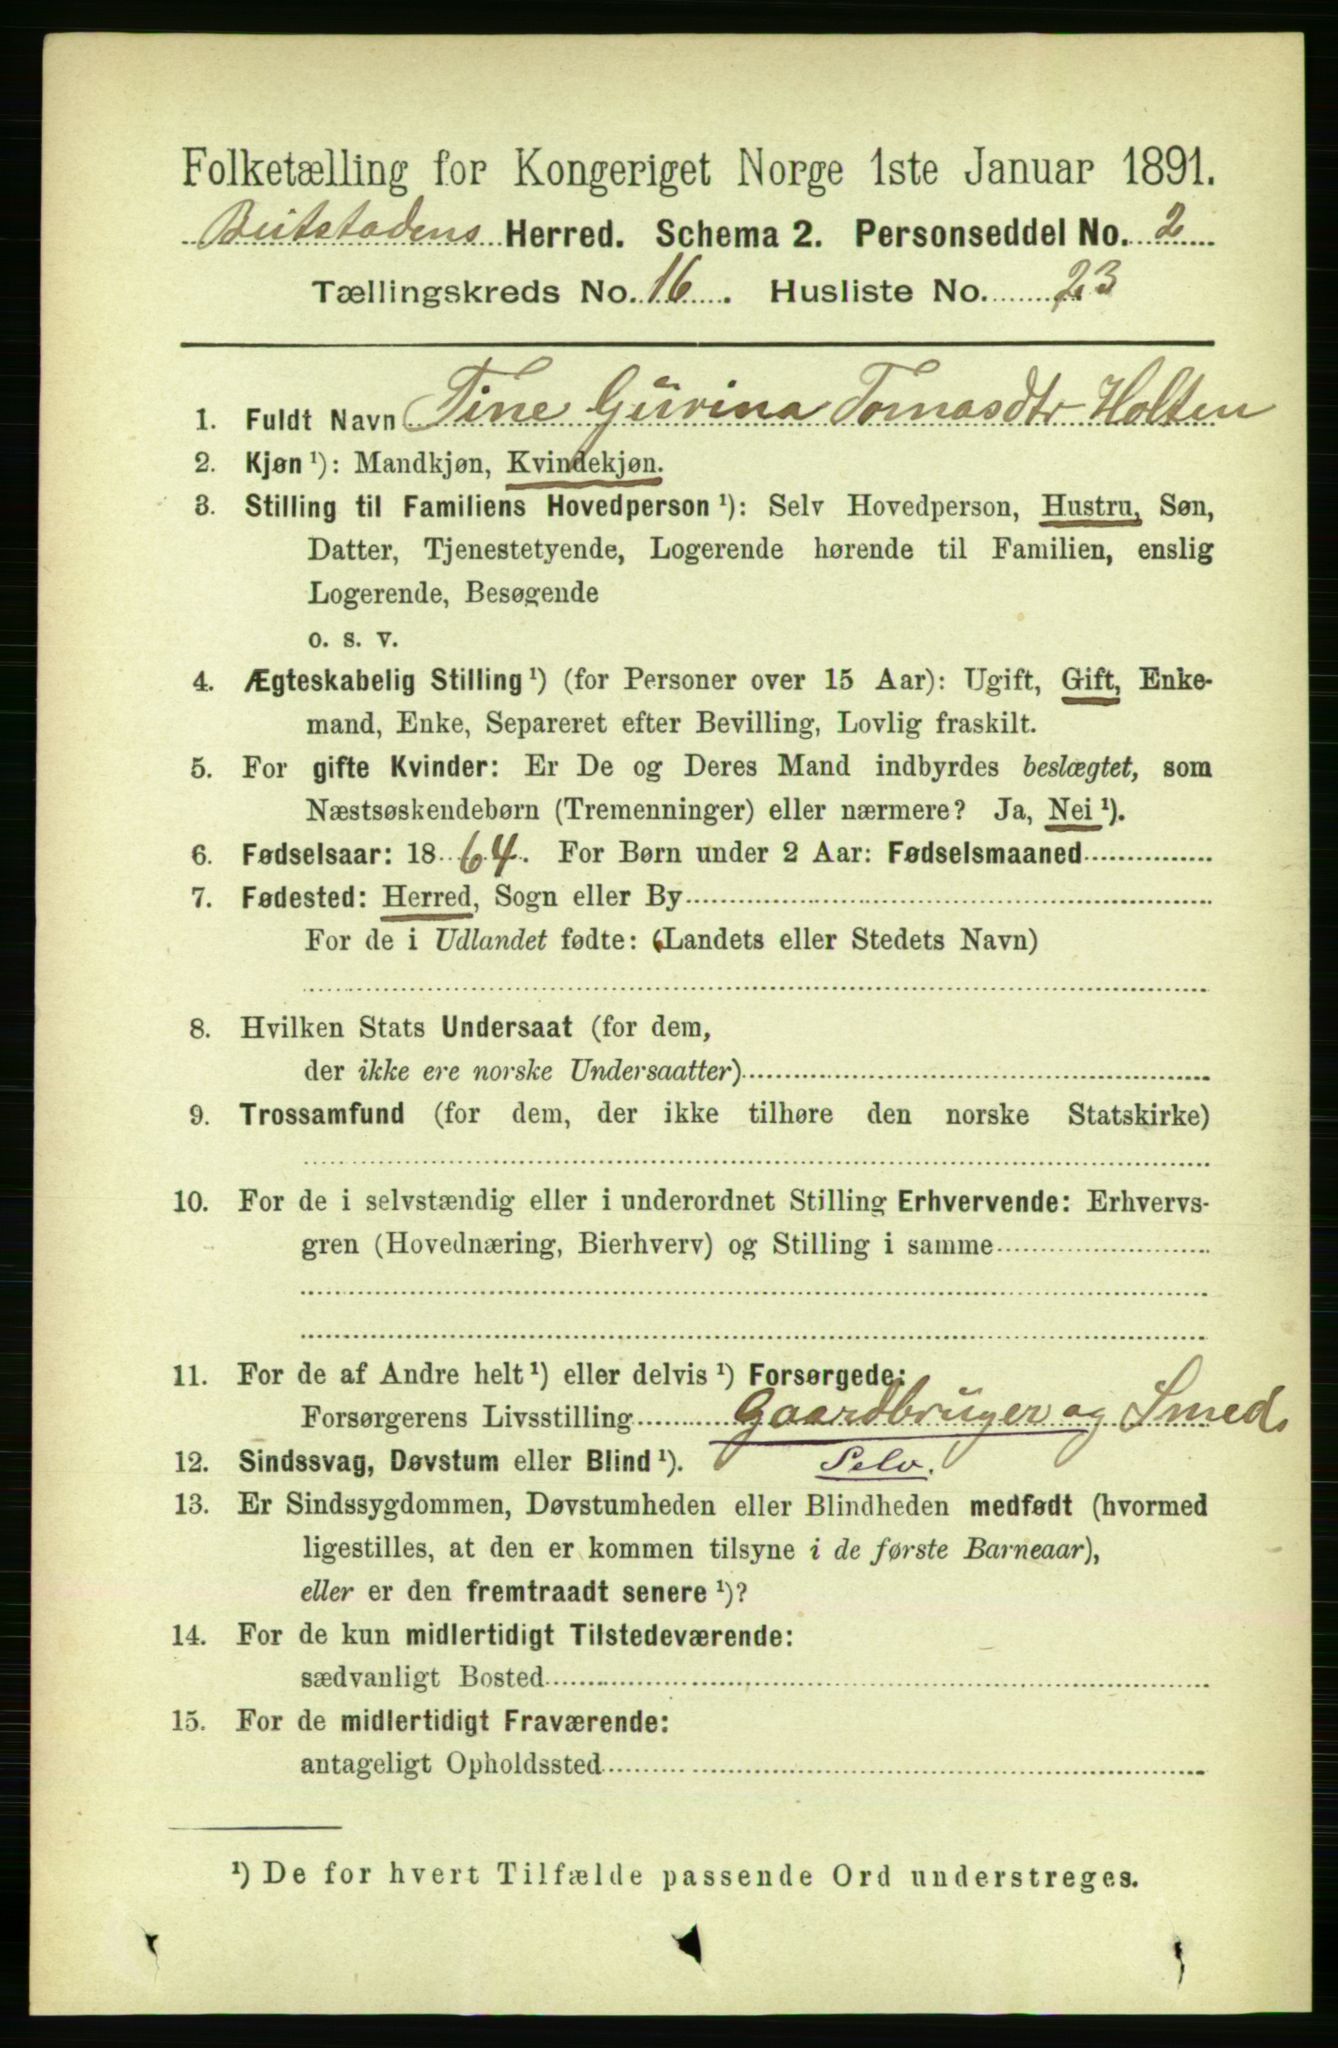 Folketælling for Kongeriget Norge 1ste Januar 1891.
Beitstadens Herred. Schema 2. Personseddel No. 2
Tællingskreds No. 16. Husliste No. 23
1. Fuldt Navn Tine Gurina Tomasdtr Holten
2. Kjøn ¹): Mandkjøn, Kvindekjøn.
3. Stilling til Familiens Hovedperson ¹): Selv Hovedperson, Hustru, Søn,
Datter, Tjenestetyende, Logerende hørende til Familien, enslig
Logerende, Besøgende
o. s. v.
4. Ægteskabelig Stilling ¹) (for Personer over 15 Aar): Ugift, Gift, Enke-
mand, Enke, Separeret efter Bevilling, Lovlig fraskilt.
5. For gifte Kvinder: Er De og Deres Mand indbyrdes beslægtet, som
Næstsøskendebørn (Tremenninger) eller nærmere? Ja, Nei ¹).
6. Fødselsaar: 1864. For Børn under 2 Aar: Fødselsmaaned
7. Fødested: Herred, Sogn eller By
For de i Udlandet fødte: (Landets eller Stedets Navn)
8. Hvilken Stats Undersaat (for dem,
der ikke ere norske Undersaatter)
9. Trossamfund (for dem, der ikke tilhøre den norske Statskirke)
10. For de i selvstændig eller i underordnet Stilling Erhvervende: Erhvervs-
gren (Hovednæring, Bierhverv) og Stilling i samme
11. For de af Andre helt ¹) eller delvis ¹) Forsørgede:
Forsørgerens Livsstilling Gaardbruger og Smed
12. Sindssvag, Døvstum eller Blind ¹). Selv.
13. Er Sindssygdommen, Døvstumheden eller Blindheden medfødt (hvormed
ligestilles, at den er kommen tilsyne i de første Barneaar),
eller er den fremtraadt senere ¹)?
14. For de kun midlertidigt Tilstedeværende:
sædvanligt Bosted
15. For de midlertidigt Fraværende:
antageligt Opholdssted
¹) De for hvert Tilfælde passende Ord understreges.